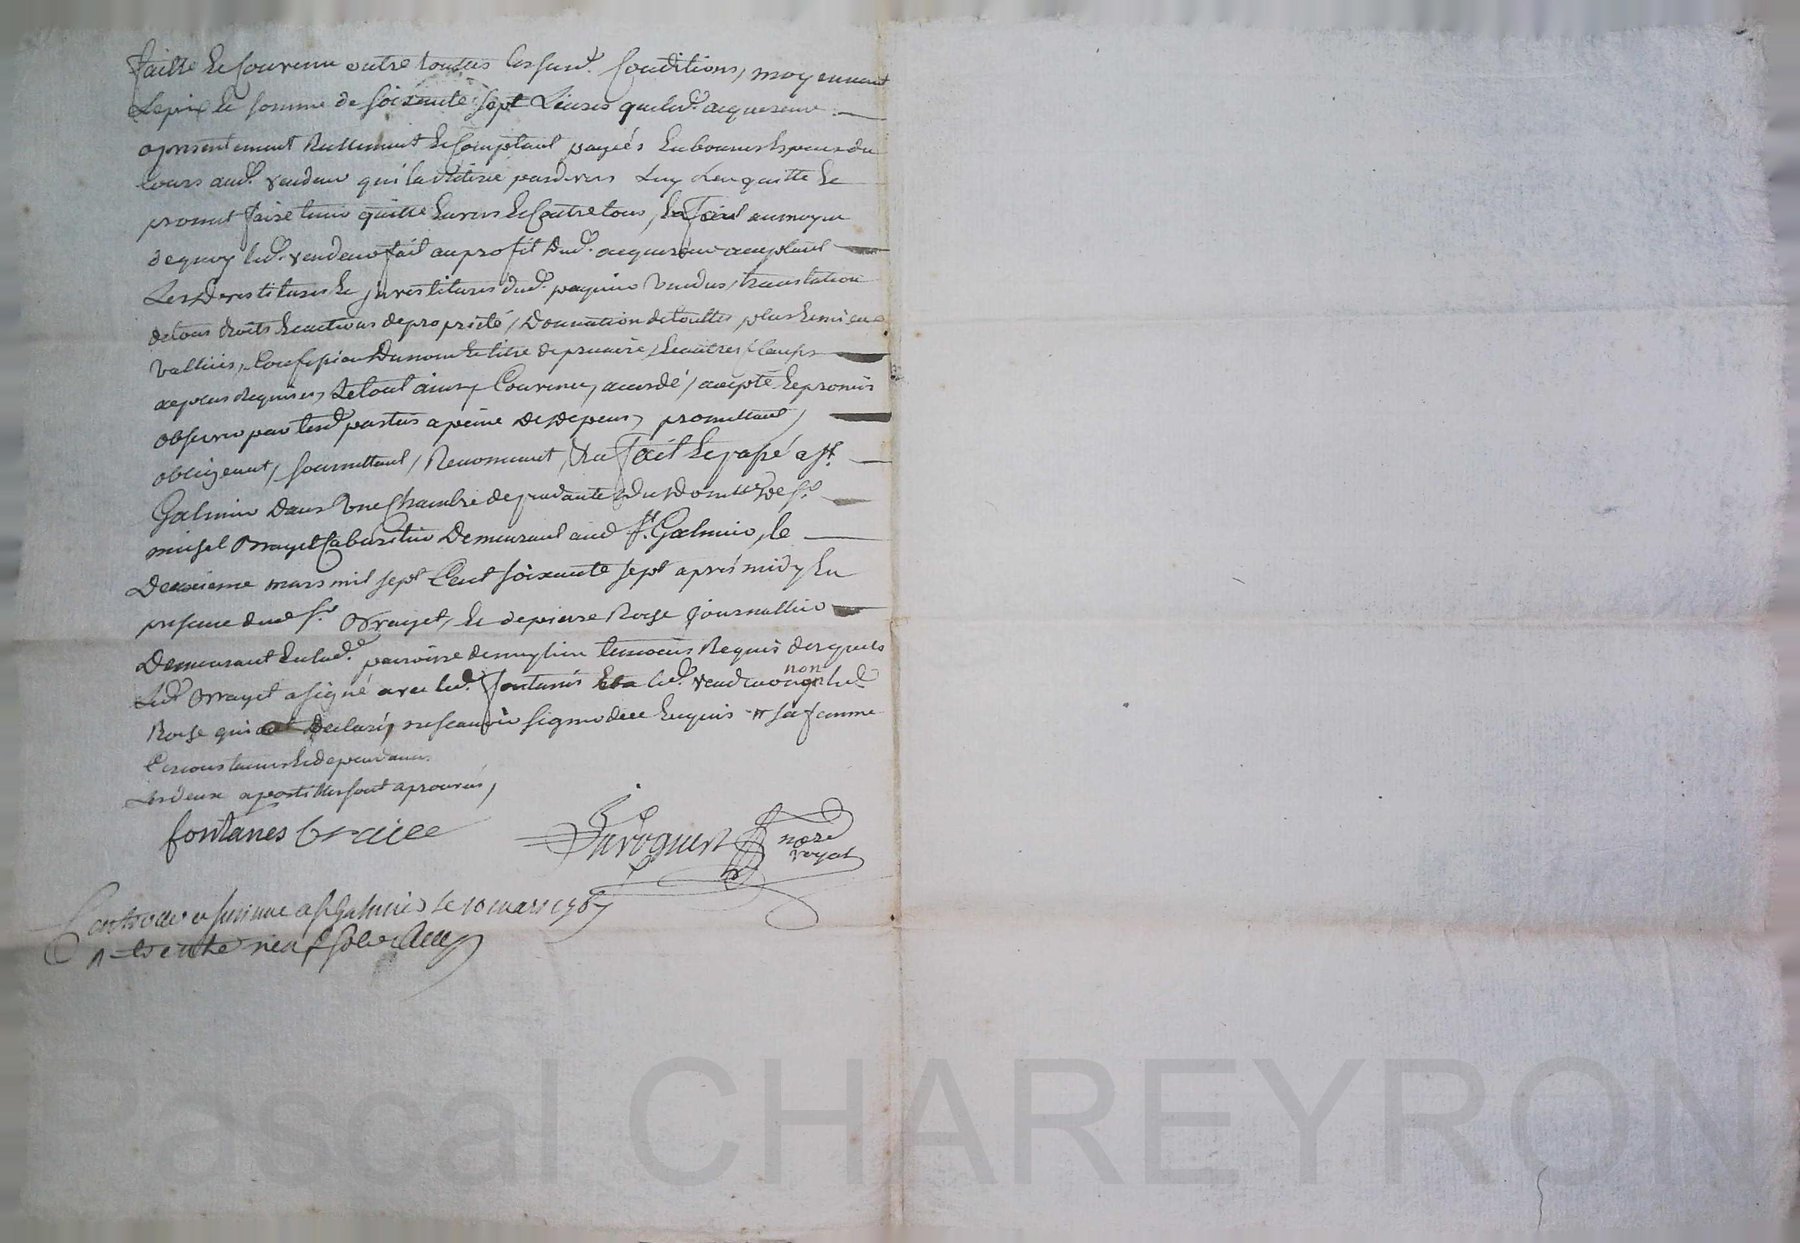 faitte & Convenu outre touttes les susd. Conditions, moyennant
Le prix & somme de soixante sept Livres que led. acquereur
a presentement Reellement & Comptant payées En bonnes Especes du
Cours aud. vendeur qui la Retirée pardevers Luy L'en quitte &
promet faire tenir quitte Envers & Contre tous, En fait au moyen
de quoy led. vendeur fait au profit Dud. acquereur acceptant
Les Devestitures & jnvestitures dud. vendus, translation
de tous droits & actions de proprieté, Donnation de touttes plus & mieux
vallües, Confession Du nom & titre de precaire, & autres Clauses
a ce plus Requises, Le tout ainsy Convenu, accordé, accepté & promis
observer par Lesd. parties a peine De Depens, promettant,
obligeant, soumettant, Renoncant, En fait & passé a St.
Galmier Dans Une Chambre dependante Du Domicille De sr.
michel Brayet Cabaretier Demeurant aud. St. Galmier, le
Deuxieme mars mil sept Cent soixante sept après midy En
presence dud. sr. Brayet, & de pierre Roche journallier
Demeurant En lad. paroisse temoins Requis desquels
Led. Brayet a signé avec led. fontanés led. vendeur non
Roche qui Declaré, ne scavoir signer dece Enquis sa femme
Circonstances & dependances
Les deux apostilles sont aprouvés,
fontanes
no.re
royal
Controllé a St Galmier Le 10 mars 1767